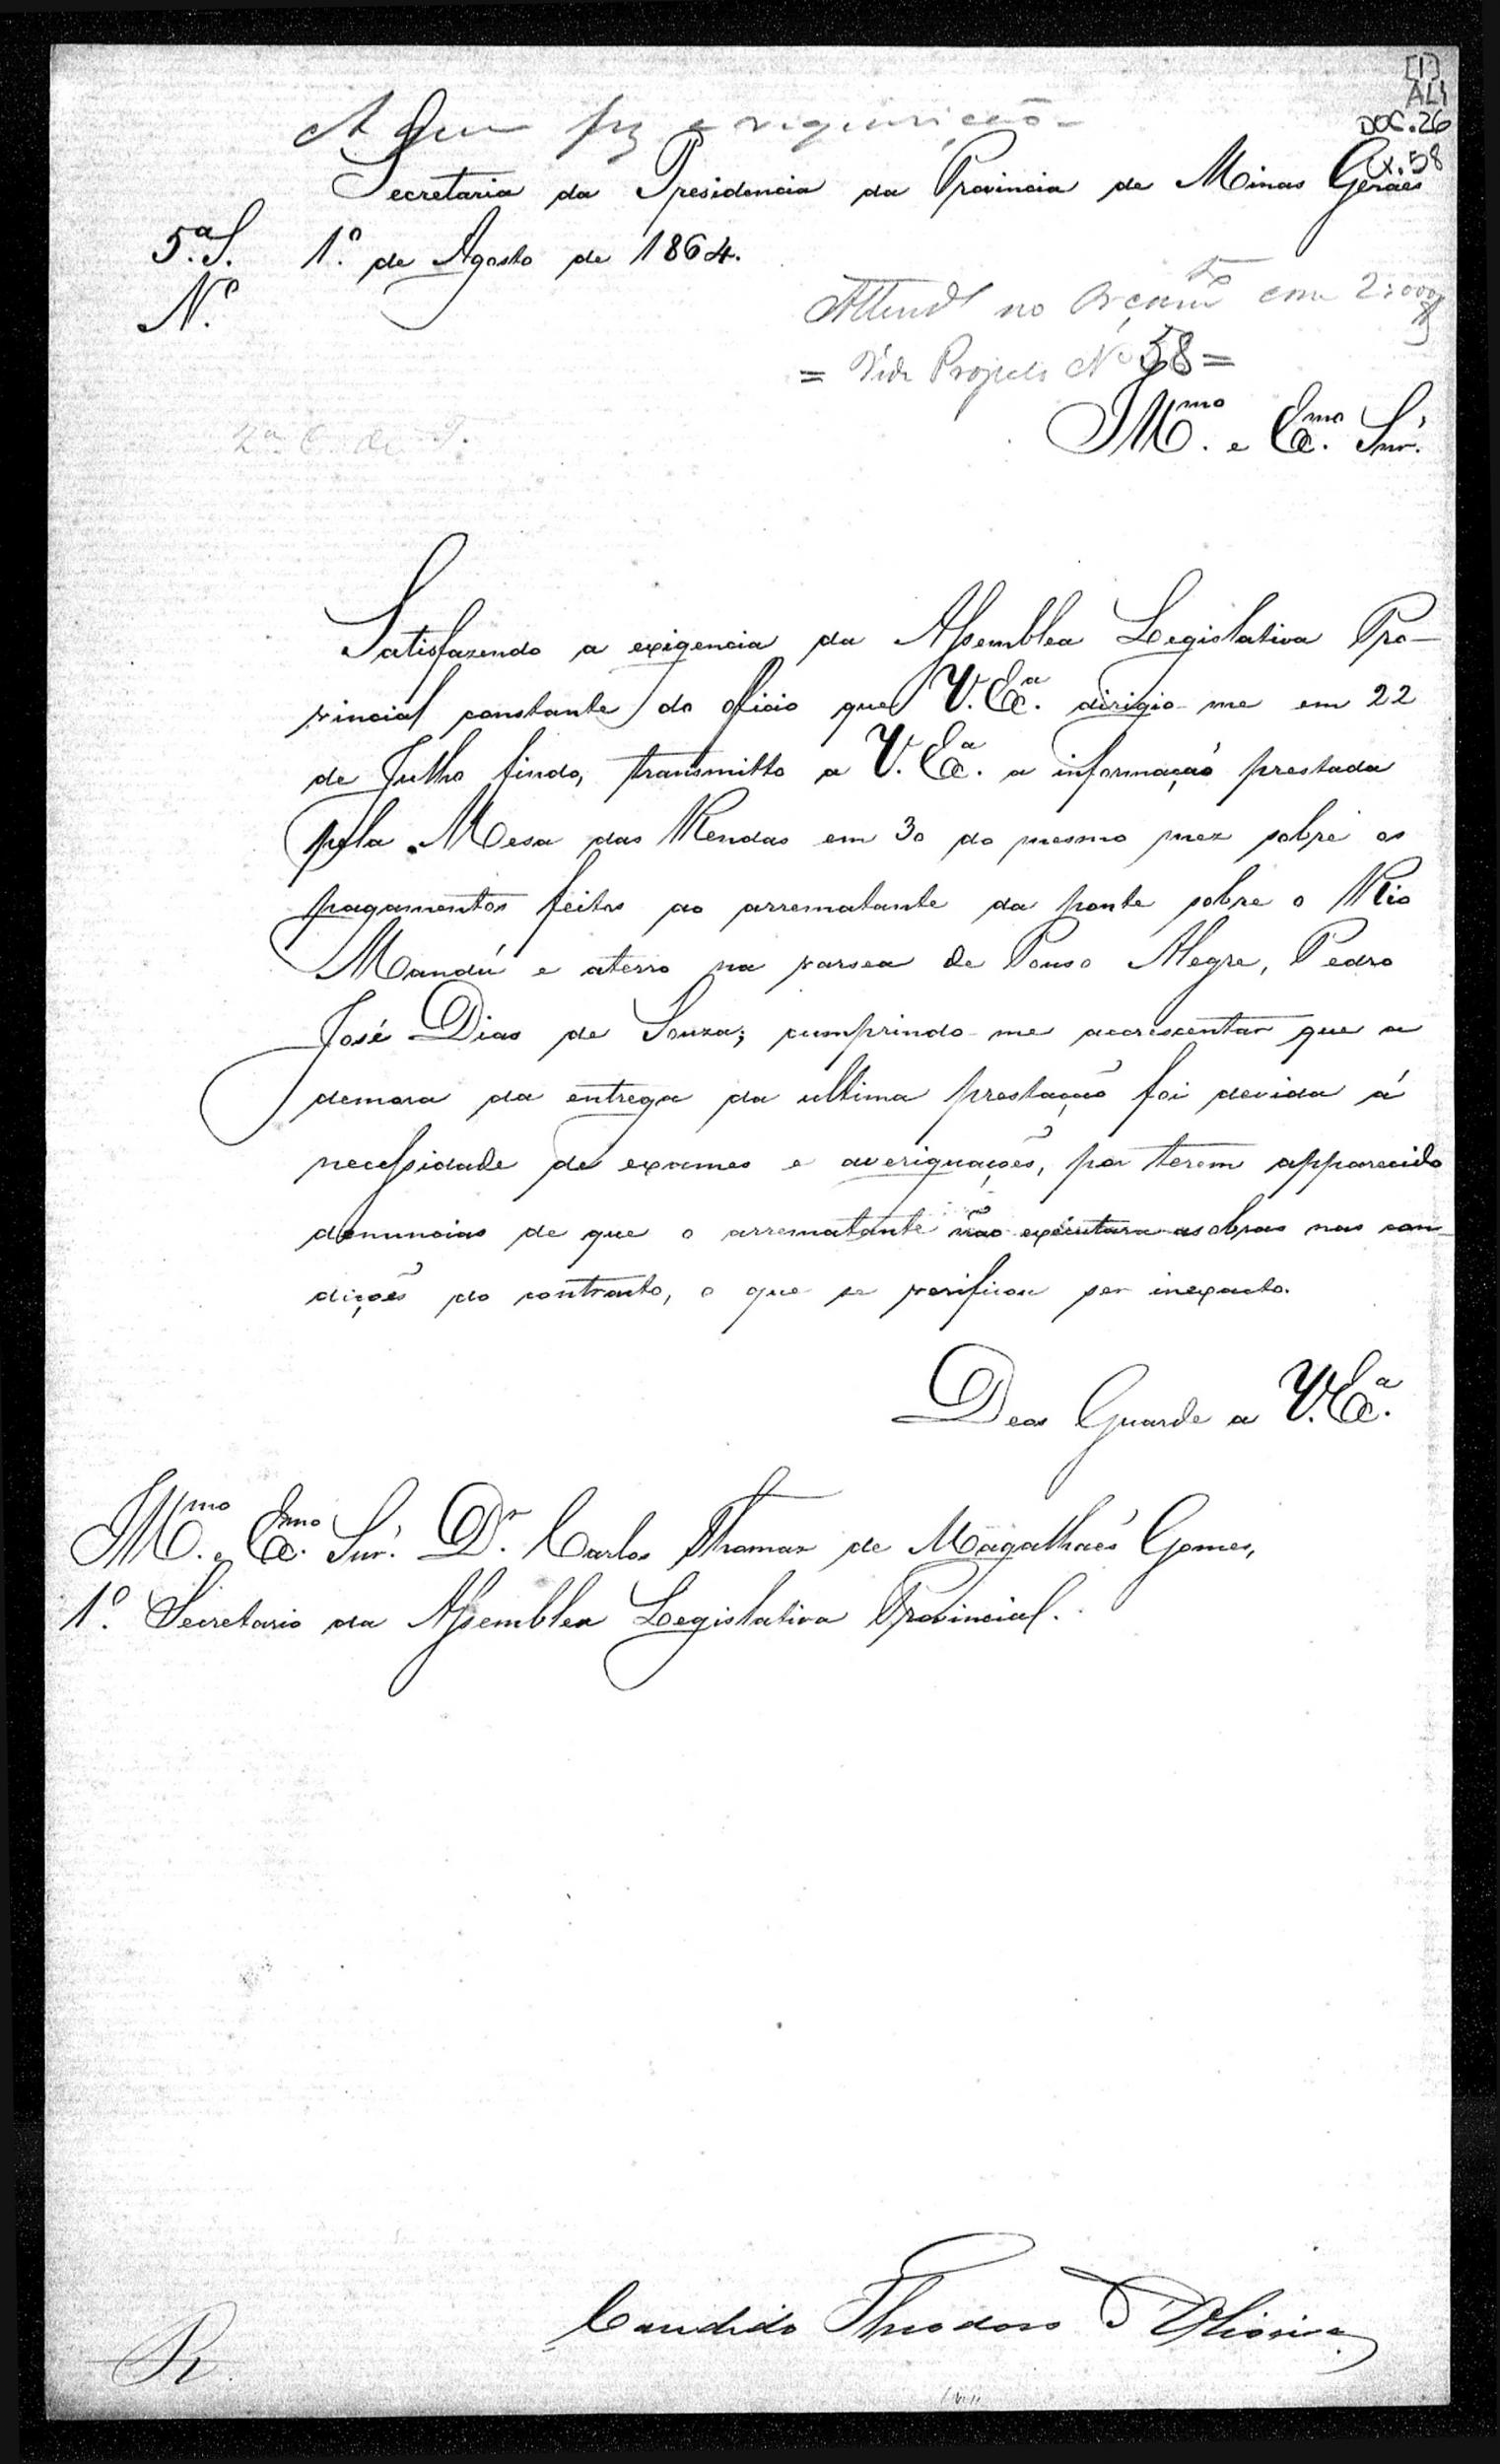 [1]
AL1
DOC. 26
Cx. 58
A quem fez a requisição
Secretaria da Presidencia da Provincia de Minas Geraes
5.ª S. 1.º de Agosto de 1864.
N.º
Attend.º no Orçam.to com 2:000$
= Vide Projecto Nº 58 =
Ill.mo e Ex.mo Snr.
Satisfazendo a exigencia da Assemblea Legislativa Pro-
vincial constante do oficio que V. Ex.ª dirigio-me em 22
de Julho findo, transmitto a V. Ex.ª a informação prestada
pela Mesa das Rendas em 30 do mesmo mez sobre os
pagamentos feitos ao arrematante da ponte sobre o Rio
Mandú e aterro na varsea de Pouso Alegre, Pedro
José Dias de Souza; cumprindo-me accrescentar que a
demora da entrega da ultima prestação foi devida á
necessidade de exames e averiguações, por terem apparecido
denuncias de que o arrematante não executara as obras nas con-
dições do contracto, o que se verificou ser inexacto.
Deos Guarde a V. Ex.ª
Ill.mo e Ex.mo Snr. D.r Carlos Thomaz de Magalhães Gomes,
1.º Secretario da Assemblea Legislativa Provincial.
Candido Theodoro d'Oliveira
R